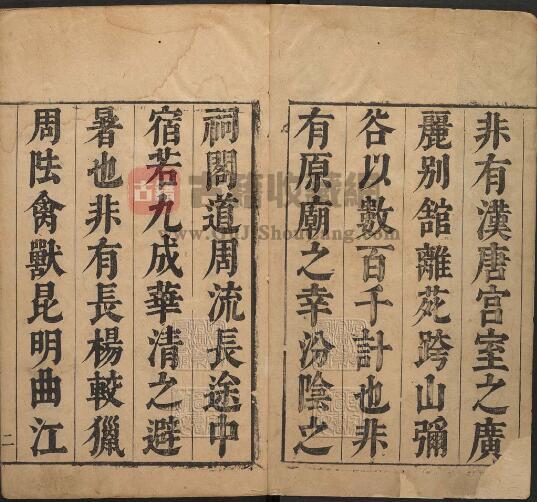 非有漢唐宮室之廣
麗别舘離苑跨山彌
谷以數百千計也非
有原廟之幸汾陰之
祠閣道周流長途中
宿若九成華清之避
暑也非有長楊較獵
周阹禽獸昆明曲江
二
古籍收藏網